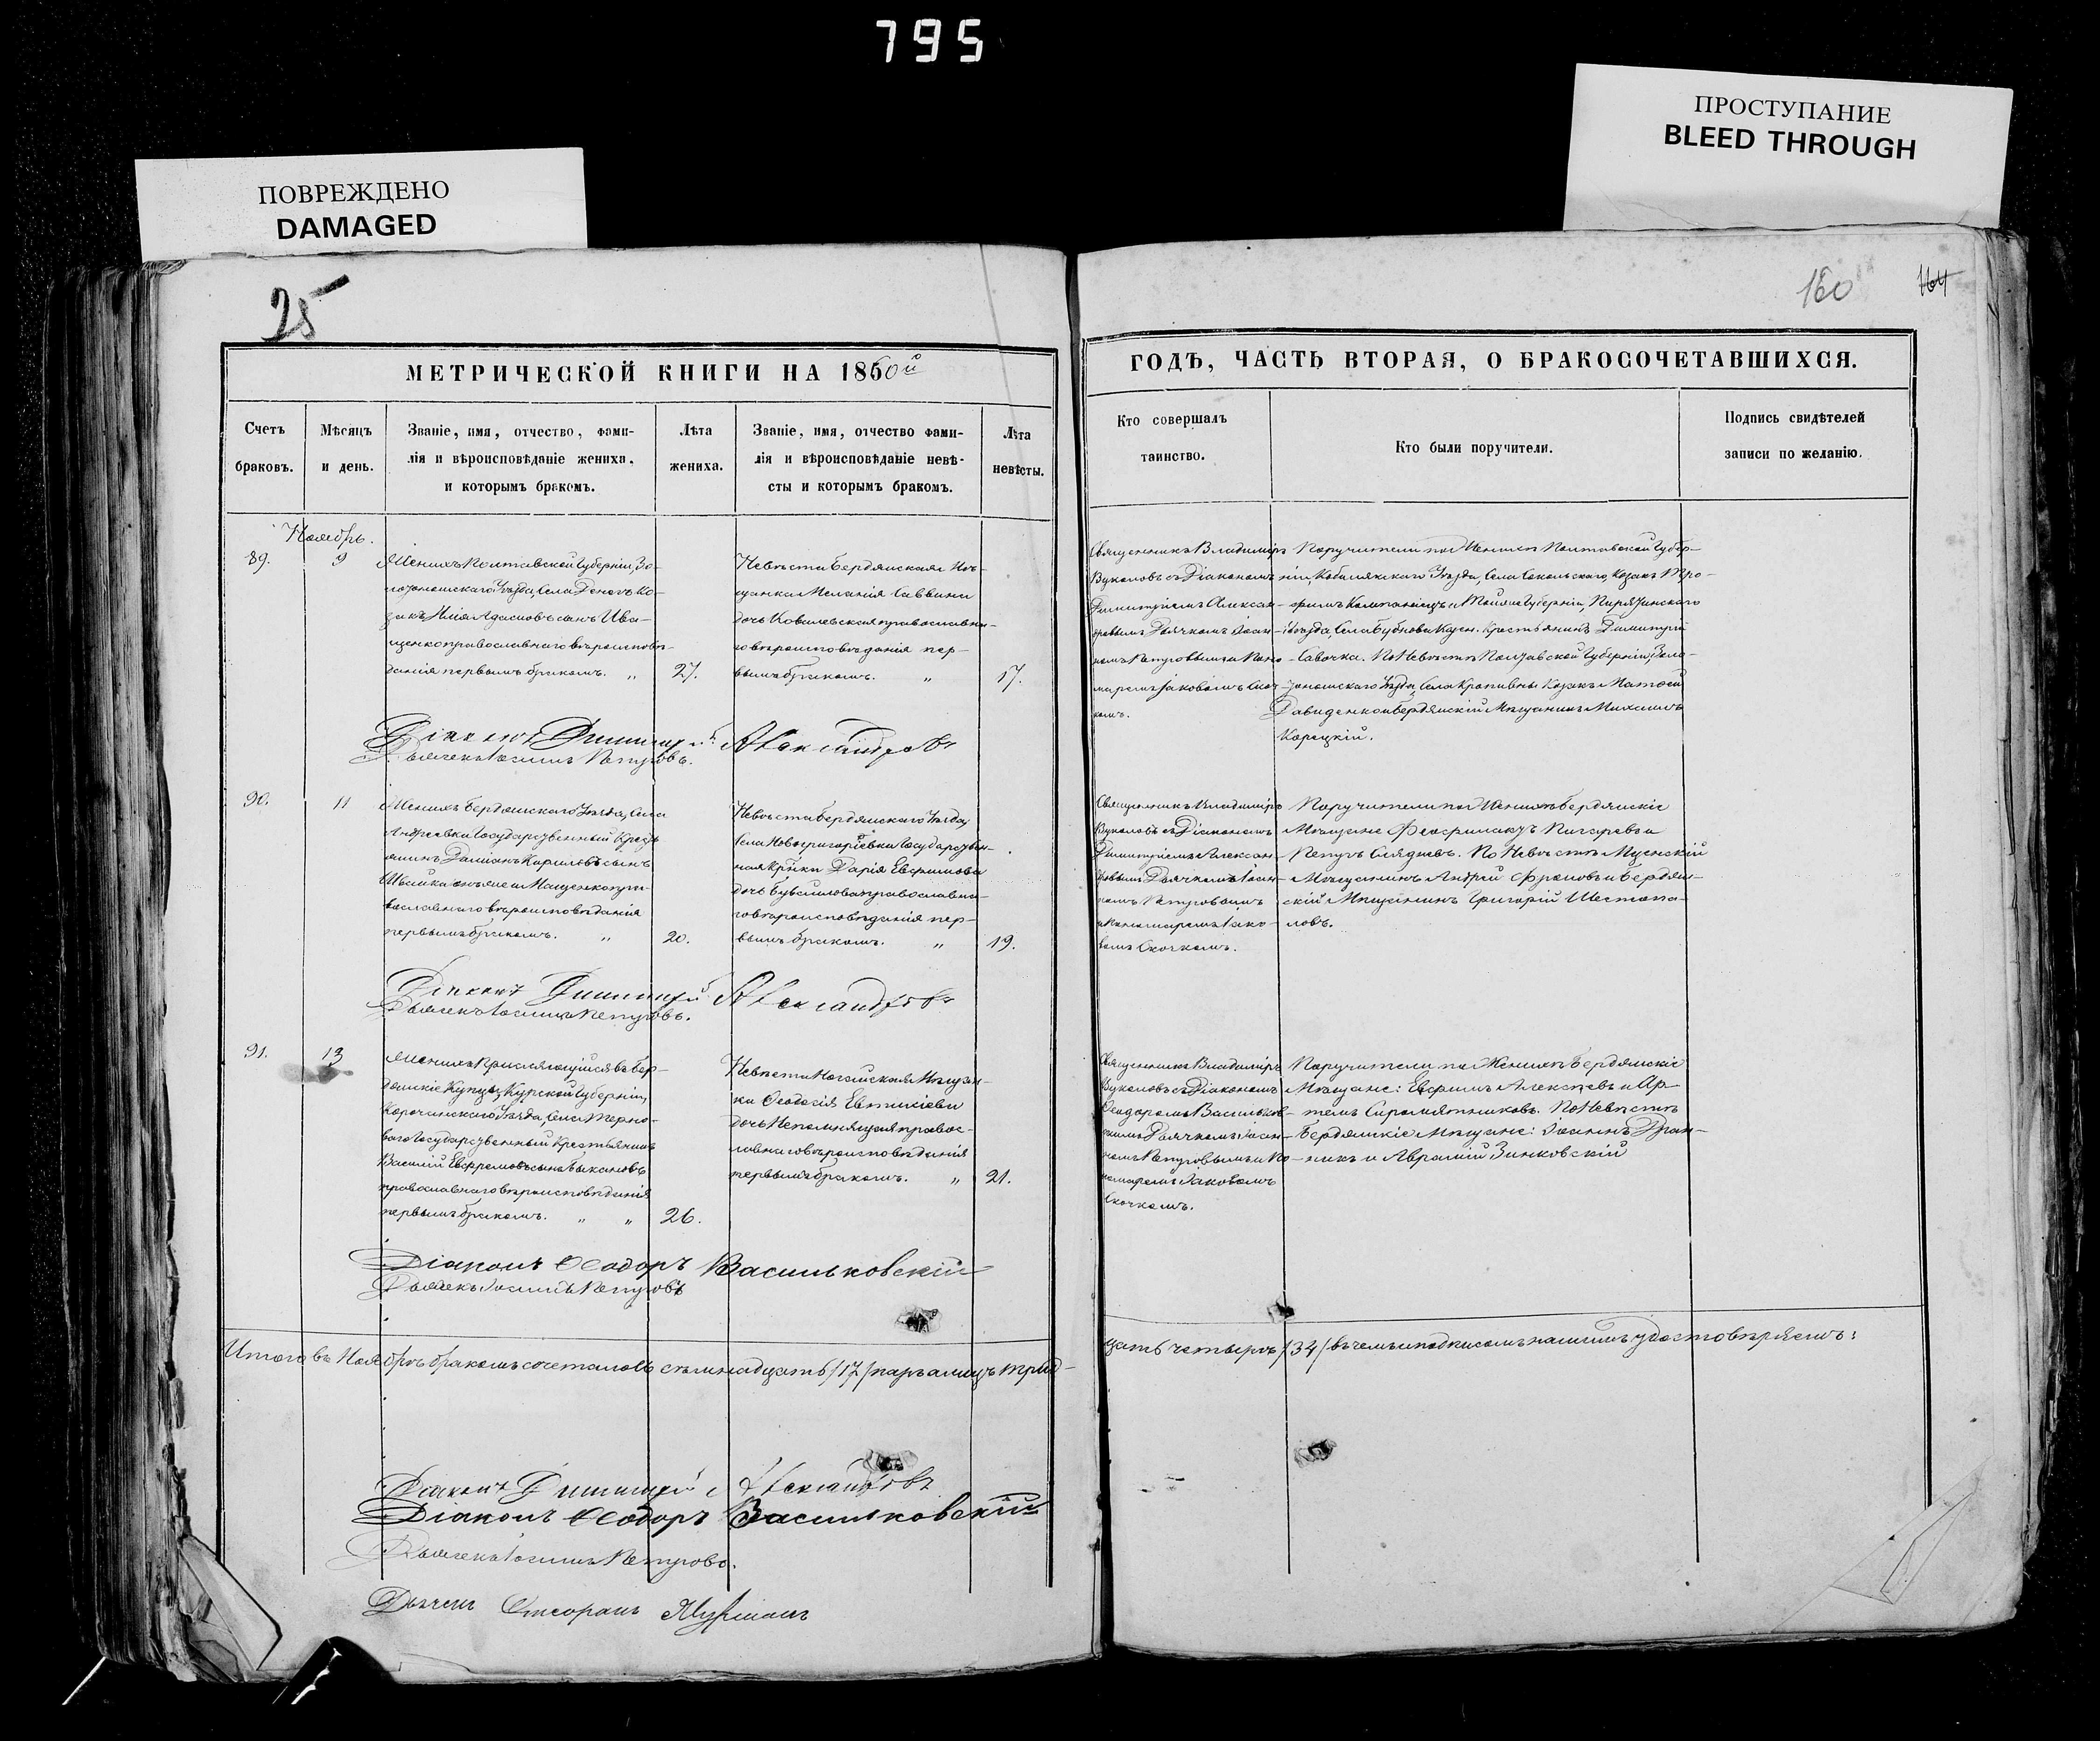 795
ПОВРЕЖДЕНО
DAMAGED
ПРОСТУПАНИЕ
BLEED THROUGH
25
160
164
МЕТРИЧЕСКОЙ КНИГИ НА 1860й
Счетъ
браковъ.
Мѣсяцъ
и день.
Званіе, имя, отчество, фами-
лія и вѣроисповѣданіе жениха,
и которымъ бракомъ.
Лѣта
жениха.
Званіе, имя, отчество фами-
лія и вѣроисповѣданіе невѣ-
сты и которымъ бракомъ.
Лѣта
невѣсты.
ГОДЪ, ЧАСТЬ ВТОРАЯ, О БРАКОСОЧЕТАВШИХСЯ.
Кто совершалъ
таинство.
Кто были поручители.
Подпись свидѣтелей
записи по желанію.
Ноябрь.
89.
9
Женихъ Полтавской Губерніи, Зо-
лотоношскаго Уѣзда, Села Ко-
закъ Илія Адамовъ сынъ Ива-
щенко православнаго вѣроисповѣ-
данія первымъ бракомъ. „
27.
Невѣста Бердянская Мѣ-
щанка Меланія Саввина
дочь Ковалевская православна-
го вѣроисповѣданія пер-
вымъ бракомъ. „
17.
Священникъ Владиміръ
Вуколовъ съ Діакономъ
Димитріемъ Алексан-
дровымъ Дьячкомъ Іоан-
номъ Петровымъ и Поно-
маремъ Іаковомъ Скоч-
комъ.
Поручители по Женихѣ Полтавской Губер-
ніи, Кобелякскаго Уѣзда, Села Сокольскаго, Козакъ Тро-
фимъ Компаніецъ и Тойже Губерніи, Пирятинскаго
Уѣзда, Села Бубнова Казен. Крестьянинъ Димитрій
Савочка. По Невѣстѣ Полтавской Губерніи, Золо-
тоношскаго Уѣзда, Села Кропивны Козакъ Матѳей
Давиденко и Бердянскій Мѣщанинъ Михаилъ
Корецкій.
Діаконъ Димитрій Александровъ
Дьячекъ Іоаннъ Петровъ.
90.
11
Женихъ Бердянскаго Уѣзда, Села
Андреевки Государственный Кресть-
янинъ Даміанъ Кириловъ сынъ
Швейка онъ же и Мащенко пра-
вославнаго вѣроисповѣданія
первымъ бракомъ. „
20.
Невѣста Бердянскаго Уѣзда,
Села Новогригоріевки Государствен-
ная Кр–нка Дарія Евфимова
дочь православна-
го вѣроисповѣданія пер-
вымъ бракомъ. „
19.
Священникъ Владиміръ
Вуколовъ съ Діакономъ
Димитріемъ Алексан-
дровымъ Дьячкомъ Іоан-
номъ Петровымъ
и Пономаремъ Іако-
вомъ Скочкомъ.
Поручители по Женихѣ Бердянскіе
Мѣщане Ѳеофилактъ Пигаревъ и
Петръ Слядневъ. По Невѣстѣ
Мѣщанинъ Андрей Фроловъ и Бердян-
скій Мѣщанинъ Григорій Шестопа-
ловъ.
Діаконъ Димитрій Александровъ
Дьячекъ Іоаннъ Петровъ.
91.
13
Женихъ Причисляющійся въ Бер-
дянскіе Купцы, Курской Губерніи,
Корочанскаго Уѣзда, Села Терно-
ваго Государственный Крестьянинъ
Василій Ефремовъ сынъ Быкановъ
православнаго вѣроисповѣданія
первымъ бракомъ. „ „
26.
Невѣста Ногайская Мѣщан-
ка Ѳеодосія Евтихіева
дочь Непомнящая правос-
лавнаго вѣроисповѣданія
первымъ бракомъ. „
21.
Священникъ Владиміръ
Вуколовъ съ Діакономъ
Ѳеодоромъ Васильков-
скимъ Дьячкомъ Іоан-
номъ Петровымъ и По-
номаремъ Іаковомъ
Скочкомъ.
Поручители по Женихѣ Бердянскіе
Мѣщане: Евфимъ Алексѣевъ и Ар-
темъ Сыромятниковъ. По Невѣстѣ
Бердянскіе Мѣщане: Іоаннъ Дран-
никъ и Аврамій Зинковскій
Діаконъ Ѳеодоръ Васильковскій
Дьячекъ Іоаннъ Петровъ
Итого въ Ноябрѣ бракомъ сочеталось семнадцать /17/ паръ а лицъ трид-
цать четыре /34/ въ чемъ и подписомъ нашимъ удостовѣряемъ:
Діаконъ Димитрій Александровъ
Діаконъ Ѳеодоръ Васильковскій
Дьячекъ Іоаннъ Петровъ.